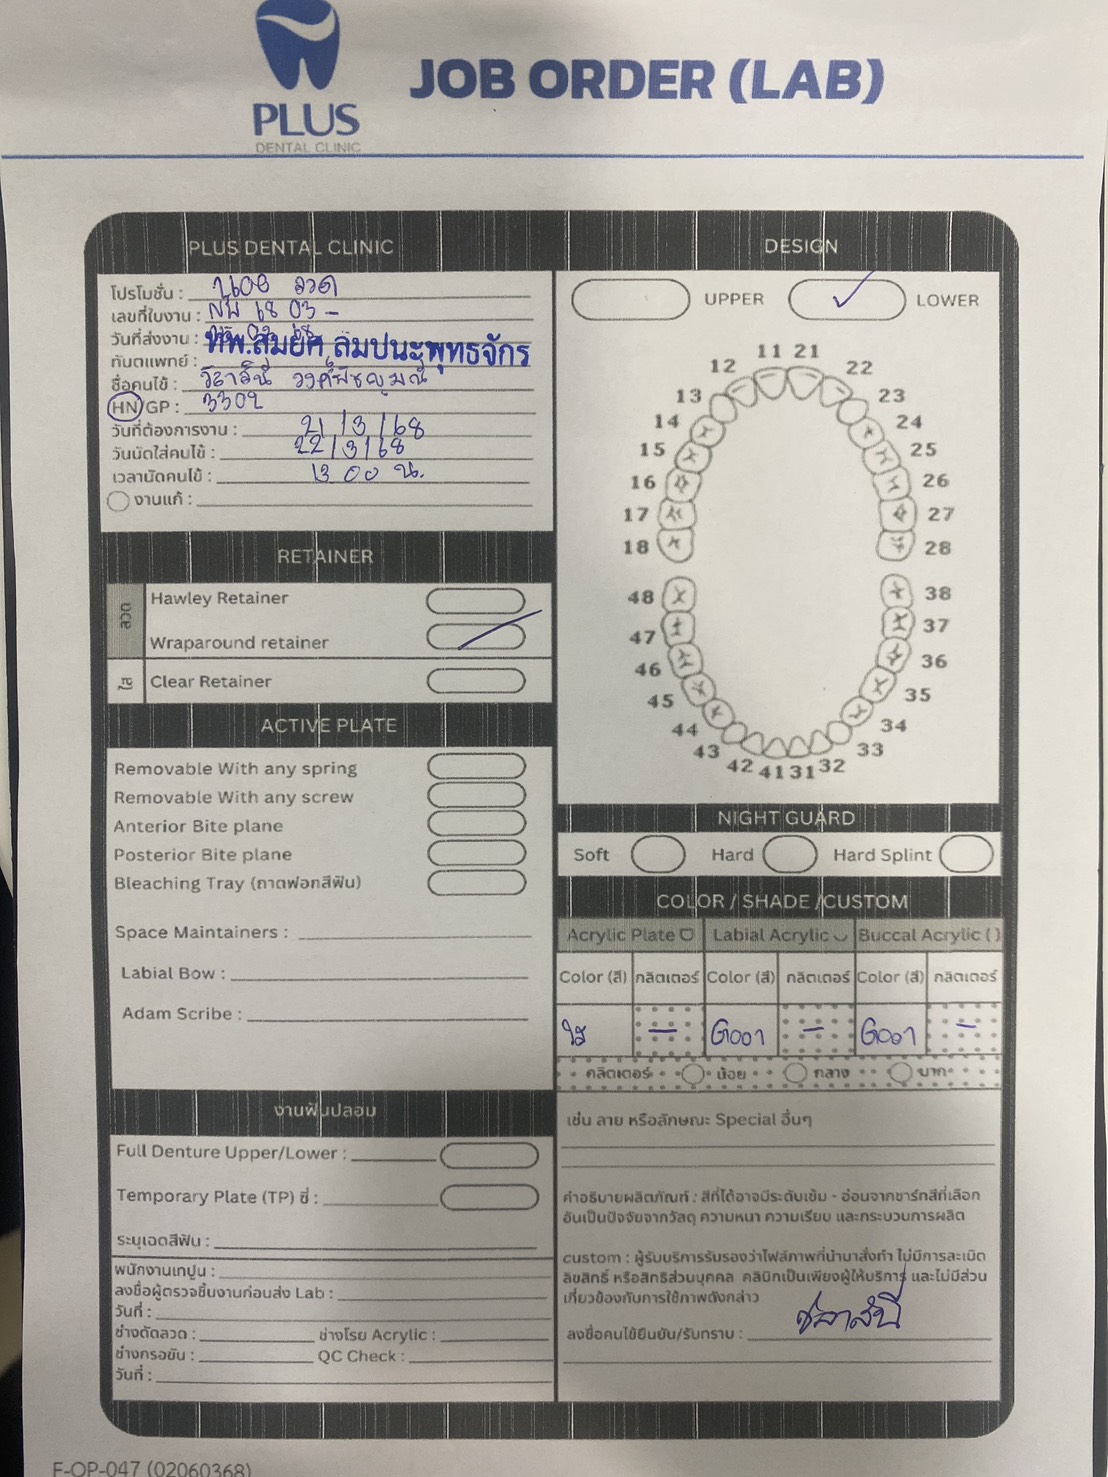 PLUS
DENTAL CLINIC
JOB ORDER (LAB)
PLUS DENTAL CLINIC
โปรโมชั่น :
เลขที่ใบงาน : 68 03 -
วันที่ส่งงาน :
ทันตแพทย์ : ทพ.สมยศ ลิมปนะพุทธจักร
ชื่อคนไข้ :
HN/GP : 3302
วันที่ต้องการงาน : 21/3/68
วันนัดใส่คนไข้ : 22/3/68
เวลานัดคนไข้ : 13 00 น.
งานแก้ :
RETAINER
ลวด
Hawley Retainer
Wraparound retainer
ใส
Clear Retainer
ACTIVE PLATE
Removable With any spring
Removable With any screw
Anterior Bite plane
Posterior Bite plane
Bleaching Tray (ถาดฟอกสีฟัน)
Space Maintainers :
Labial Bow :
Adam Scribe :
งานฟันปลอม
Full Denture Upper/Lower :
Temporary Plate (TP) ซี่ :
ระบุเฉดสีฟัน :
พนักงานเทปูน :
ลงชื่อผู้ตรวจชิ้นงานก่อนส่ง Lab :
วันที่ :
ช่างดัดลวด : ช่างโรย Acrylic :
ช่างกรอขัน : QC Check :
วันที่ :
DESIGN
UPPER LOWER
11 21
12 22
13 23
14 24
15 25
16 26
17 27
18 28
48 38
47 37
46 36
45 35
44 34
43 33
42 41 31 32
NIGHT GUARD
Soft Hard Hard Splint
COLOR / SHADE /CUSTOM
Acrylic Plate Labial Acrylic Buccal Acrylic ( )
Color (สี) กลิตเตอร์ Color (สี) กลิตเตอร์ Color (สี) กลิตเตอร์
ใส - G001 - G001 -
กลิตเตอร์ น้อย กลาง มาก
เช่น ลาย หรือลักษณะ Special อื่นๆ
คำอธิบายผลิตภัณฑ์ : สีที่ได้อาจมีระดับเข้ม - อ่อนจากชาร์ทสีที่เลือก
อันเป็นปัจจัยจากวัสดุ ความหนา ความเรียบ และกระบวนการผลิต
custom : ผู้รับบริการรับรองว่าไฟล์ภาพที่นำมาสั่งทำ ไม่มีการละเมิด
ลิขสิทธิ์ หรือสิทธิส่วนบุคคล คลินิกเป็นเพียงผู้ให้บริการ และไม่มีส่วน
เกี่ยวข้องกับการใช้ภาพดังกล่าว
ลงชื่อคนไข้ยืนยัน/รับทราบ :
F-OP-047 (02060368)